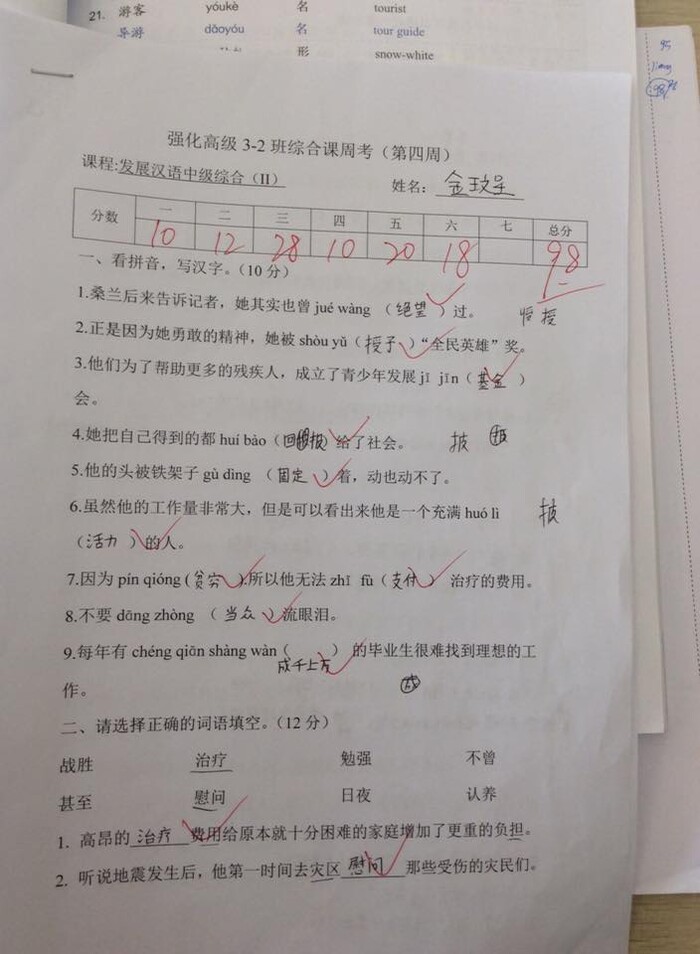 21. 游客 yóukè 名 tourist
导游 dǎoyóu 名 tour guide
形 snow-white
95
98
强化高级 3-2 班综合课周考（第四周）
课程:发展汉语中级综合（II） 姓名：金玟呈
分数 一 二 三 四 五 六 七 总分
10 12 28 10 20 18 98
一、看拼音，写汉字。（10 分）
1.桑兰后来告诉记者，她其实也曾 jué wàng （绝望）过。
授
2.正是因为她勇敢的精神，她被 shòu yǔ（授予）“全民英雄”奖。
3.他们为了帮助更多的残疾人，成立了青少年发展 jī jīn（基金）
会。
4.她把自己得到的都 huí bào（回报）给了社会。 披 报
5.他的头被铁架子 gù dìng （固定）着，动也动不了。
6.虽然他的工作量非常大，但是可以看出来他是一个充满 huó lì 披
（活力）的人。
7.因为 pín qióng (贫穷).所以他无法 zhī fù（支付） 治疗的费用。
8.不要 dāng zhòng （当众）流眼泪。
9.每年有 chéng qiān shàng wàn（成千上万） 的毕业生很难找到理想的工
作。 成
二、请选择正确的词语填空。（12 分）
战胜 治疗 勉强 不曾
甚至 慰问 日夜 认养
1. 高昂的 治疗 费用给原本就十分困难的家庭增加了更重的负担。
2. 听说地震发生后，他第一时间去灾区 慰问 那些受伤的灾民们。